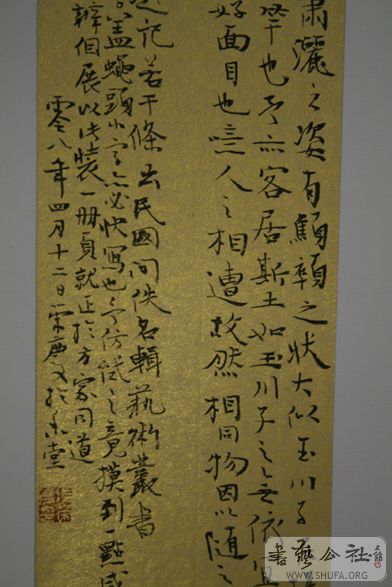 肅灑之姿有顛顇之狀大似玉川子
竿也予亦客居斯土如玉川子之無依
好面目也噫人之相遭故然相同物因以隨之
記若干條出民國間佚名輯藝術叢書
蓋蠅頭小字亦必快寫也予仿試之竟摸到點
辦個展以此裝一冊頁就正於方家同道
零八年四月十二日
書藝公社
WWW.SHUFA.ORG